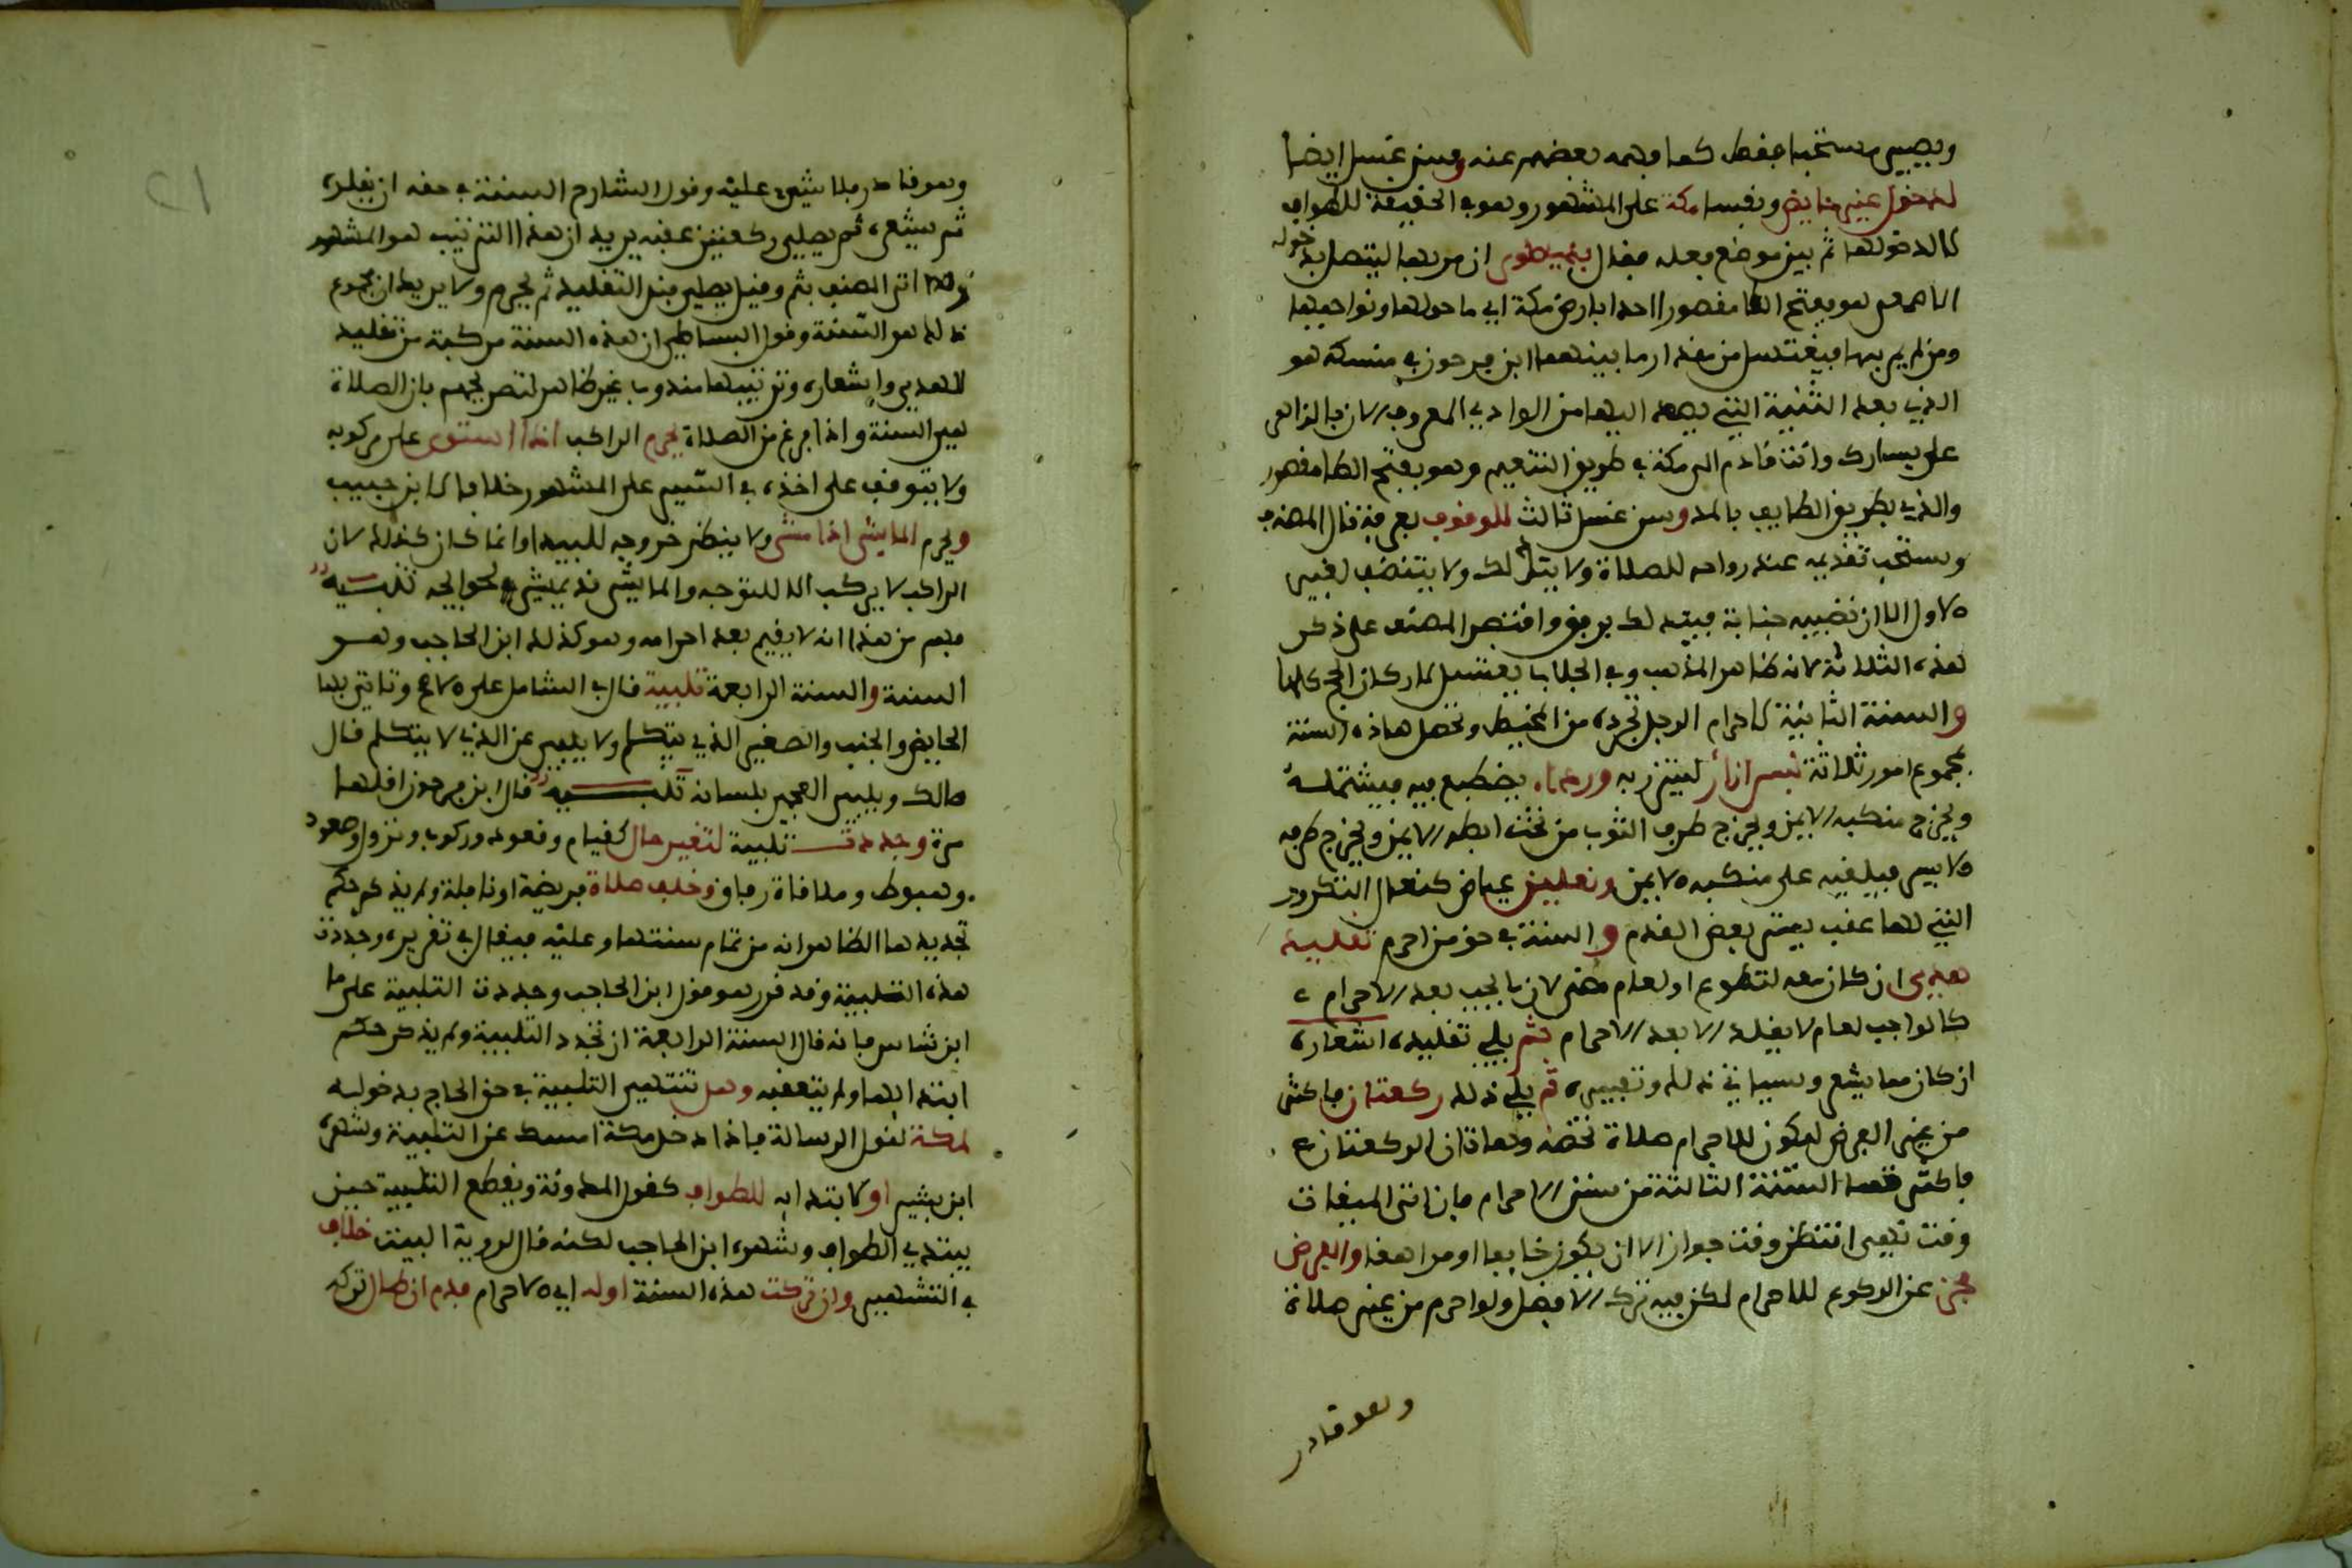 ويصير مستحبا فقط كما فهمه بعضهم عنه وسن غسل ايضا
لدخول غير حايض ونفسا مكة على المشهور وهو في الحقيقة للطواف
لا لدخولها ثم بين موضع فعله فقال بذي طوى ان مر بها ليتصل بدخوله
الاصمعي هو بفتح الطا مقصورا احد ابارض مكة اي ما حولها ونواحيها
ومن لم يمر بها فيغتسل من مقدار ما بينهما ابن فرحون في منسكه هو
الذي بعد الثنية التي يصعد اليها من الوادي المعروف الان بالزاهر
على يسارك وانت قادم الى مكة في طريق التنعيم وهو بفتح الطا مقصور
والذي بطريق الطايف بالمد وسن غسل ثالث للوقوف بعرفة قال المصنف
ويستحب تقديمه عند رواحه للصلاة ولا يتدلك ولا يتنضف لغير
الاول الا ان تصيبه جنابة فيتدلك برفق واقتصر المصنف على ذكر
هذه الثلاثة لانه ظاهر المذهب وفي الجلاب يغتسل لاركان الحج كلها
والسنة الثانية لاحرام الرجل تجرده من المخيط وتحصل هاذه السنة
بمجموع امور ثلاثة لبس ازار ليتزر به ورداء يضطبع فيه فيشتمله
ويخرج منكبه الايمن ويخرج طرف الثوب من تحت ابطه الايمن ويخرج طرفه
الايسر فيلقيه على منكبه الايمن ونعلين عياض كنعال التكرور
التي لها عقب يستر بعض القدم والسنة في حق من احرم تقليد
هدي ان كان معه لتطوع او لعام مضى لان ما يجب بعد الاحرام
كالواجب لعام لا يقلد الا بعد الاحرام ثم يلي تقليده اشعاره
ان كان مما يشعر وسياتي ذلك وتفسيره ثم يلي ذلك ركعتان فاكثر
من غير الفرض ليكون للاحرام صلاة تخصه وهاتان الركعتان
فاكثر السنة الثالثة من سنن الاحرام فان اتى الميقات
وقت نهي انتظر وقت جواز الا ان يكون خايفا او مراهقا والفرض
مجز عن الركوع للاحرام لكن فيه ترك الافضل ولو احرم من غير صلاة
وهو قادر
٢١
وهو قادر فلا شيء عليه وقول الشارح السنة في حقه ان يقلده
ثم يشعره ثم يصلي ركعتين عقبه يريد ان هذا الترتيب هو المشهور
ولذا اتى المصنف بثم وقيل يصلي قبل التقليد ثم يحرم ولا يريد ان مجموع
ذلك هو السنة وقول البساطي ان هذه السنة مركبة من تقليد
الهدي واشعاره وترتيبها مندوب غير ظاهر لتصريحهم بان الصلاة
هي السنة واذا فرغ من الصلاة يحرم الراكب اذا استوى على مركوبه
ولا يتوقف على اخذه في السير على المشهور خلافا لابن حبيب
ويحرم الماشي اذا مشى ولا ينتظر خروجه للبيدا وانما كان كذلك لان
الراكب لا يركب الا للتوجه والماشي قد يمشي في حوايجه تنبيه
فهم من هذا انه لا يقيم بعد احرامه وهو كذلك ابن الحاجب وهو
السنة والسنة الرابعة تلبية قال في الشامل على الاصح وتاتي بها
الحايض والجنب والصغير الذي يتكلم ولا يلبي عن الذي لا يتكلم قال
مالك ويلبي العجمي بلسانه تنبيه قال ابن فرحون اقلها
مرة وجددت تلبية لتغير حال كقيام وقعود وركوب ونزول وصعود
وهبوط وملاقاة رفاق وخلف صلاة فريضة او نافلة ولم يذكر حكم
تجديدها الظاهر انه من تمام سنتها وعليه فيقال في تقريره وجددت
هذه التلبية وقد قرر هو قول ابن الحاجب وجددت التلبية على ما
ابن شاس فانه قال السنة الرابعة ان تجدد التلبية ولم يذكر حكم
ابتدايها ولم يتعقبه وهل تنتهي التلبية في حق الحاج بدخوله
لمكة لقول الرسالة فاذا دخل مكة امسك عن التلبية وشهره
ابن بشير او لابتدايه للطواف كقول المدونة ويقطع التلبية حين
يبتدي الطواف وشهره ابن الحاجب لكنه قال لروية البيت خلاف
في التشهير وان تركت هذه السنة اوله اي الاحرام فدم ان طال تركه